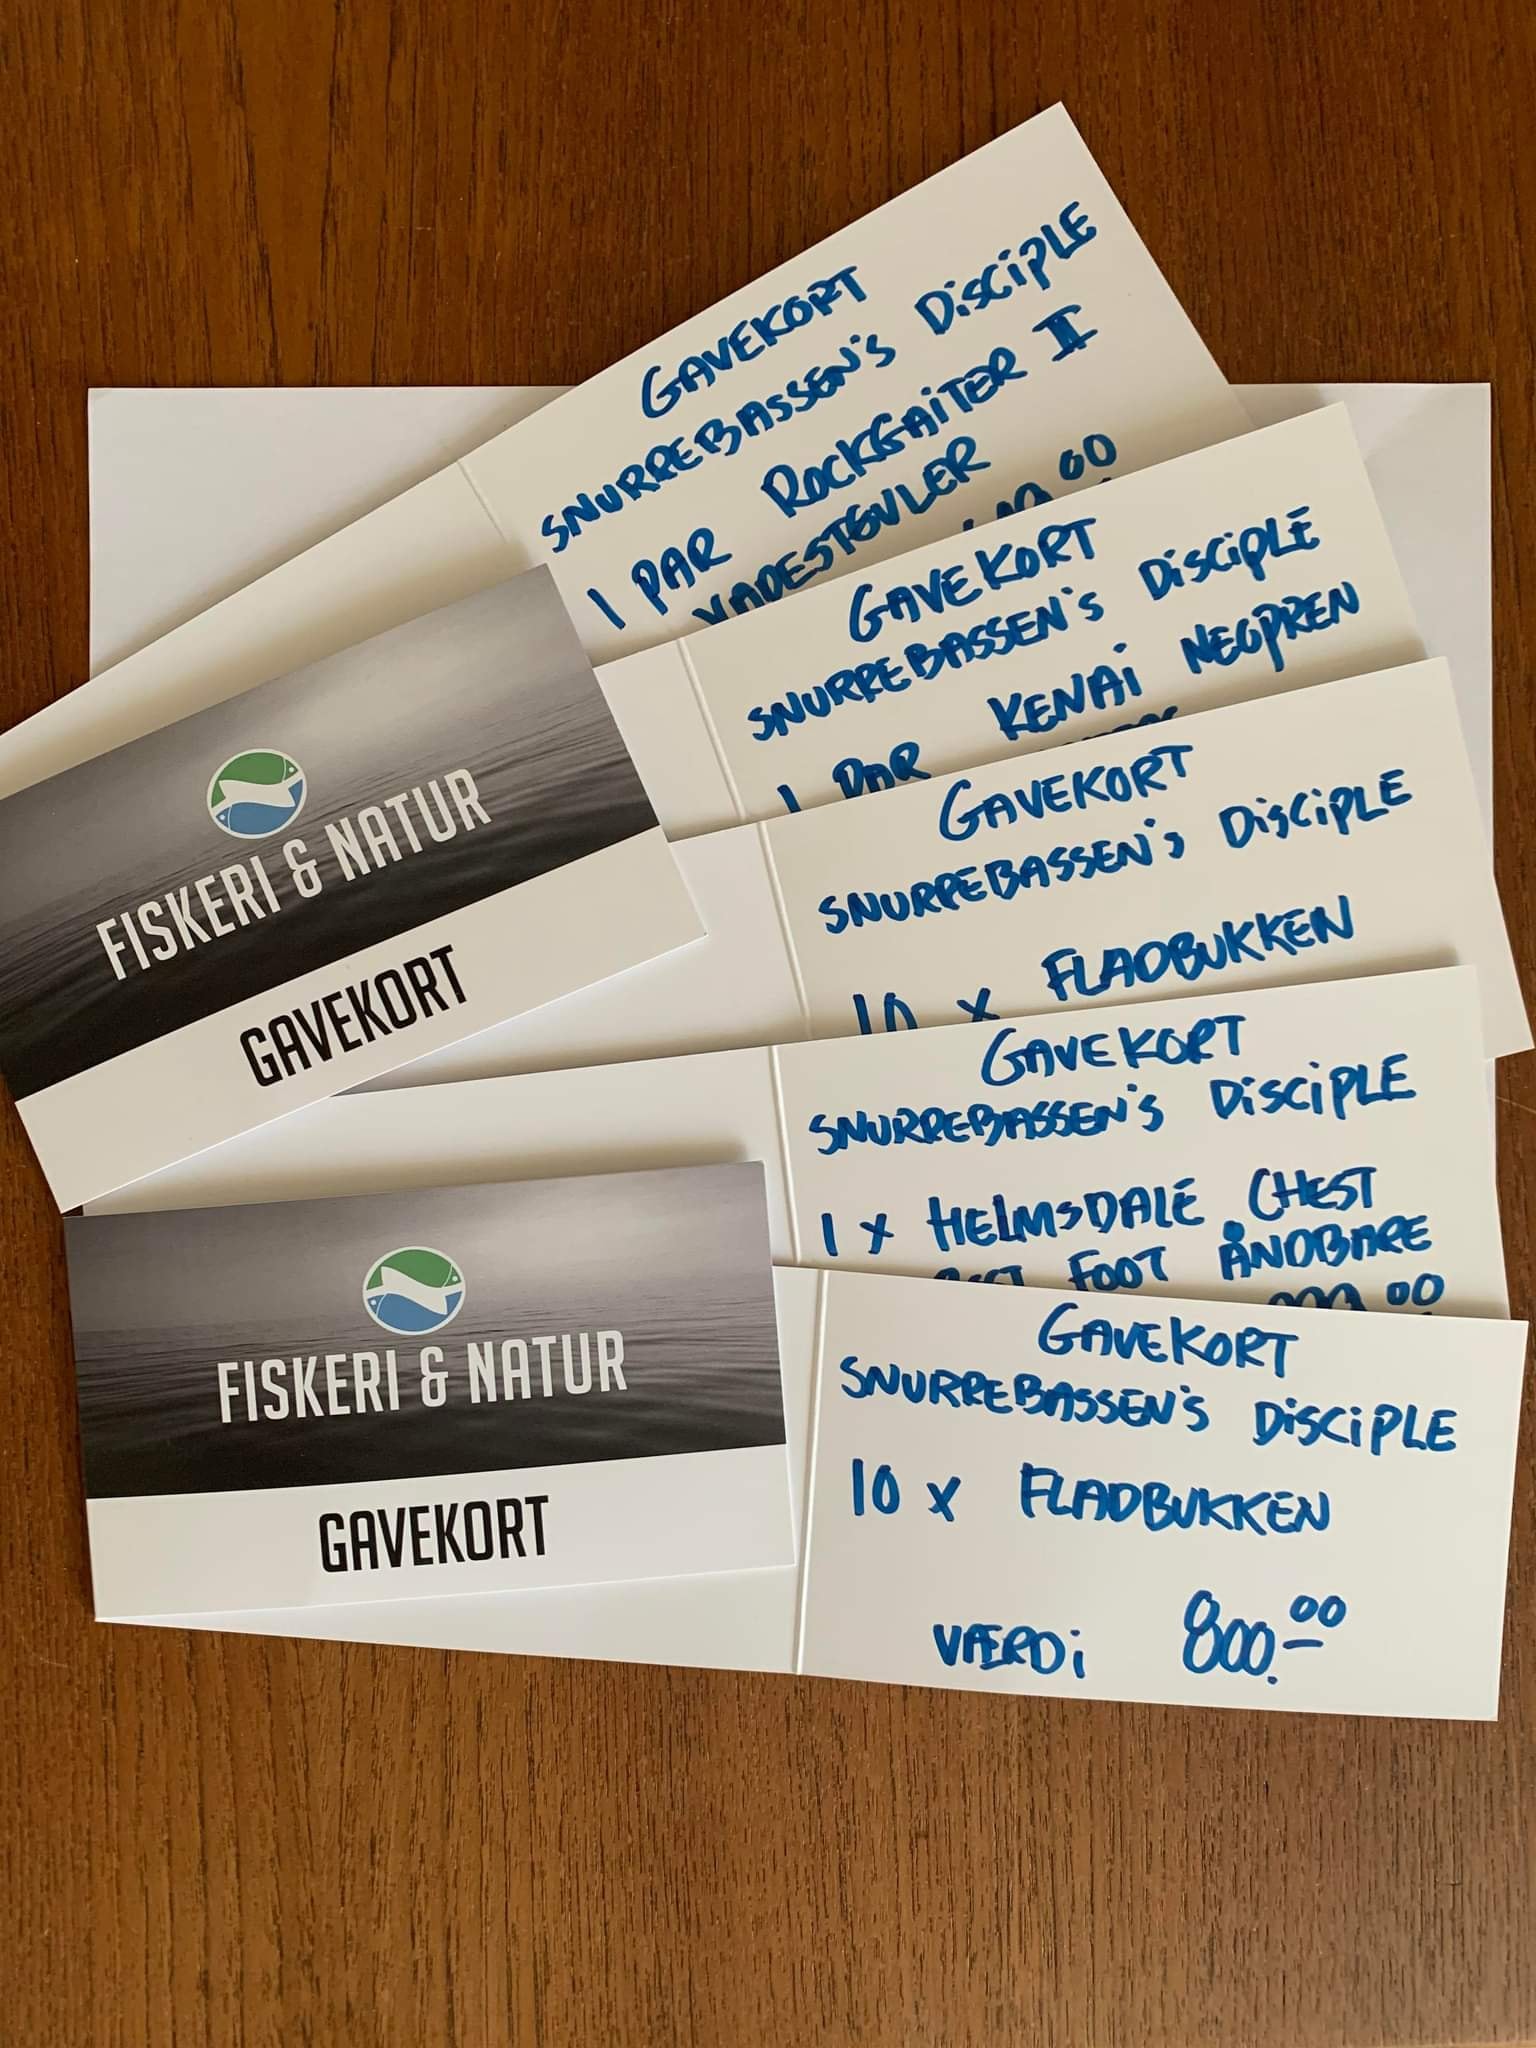 GAVEKORT
SNURREBASSEN'S DISCIPLE
1 PAR ROCKGAITER II
VADESTØVLER
00
GAVEKORT
SNURREBASSEN'S DISCIPLE
1 PAR KENAI NEOPREN
GAVEKORT
SNURREBASSEN'S DISCIPLE
10 x FLADBUKKEN
GAVEKORT
SNURREBASSEN'S DISCIPLE
1 x HELMSDALE CHEST
FOOT ÅNDBARE
00
GAVEKORT
SNURREBASSEN'S DISCIPLE
10 x FLADBUKKEN
VÆRDi 800.00
FISKERI & NATUR
GAVEKORT
FISKERI & NATUR
GAVEKORT